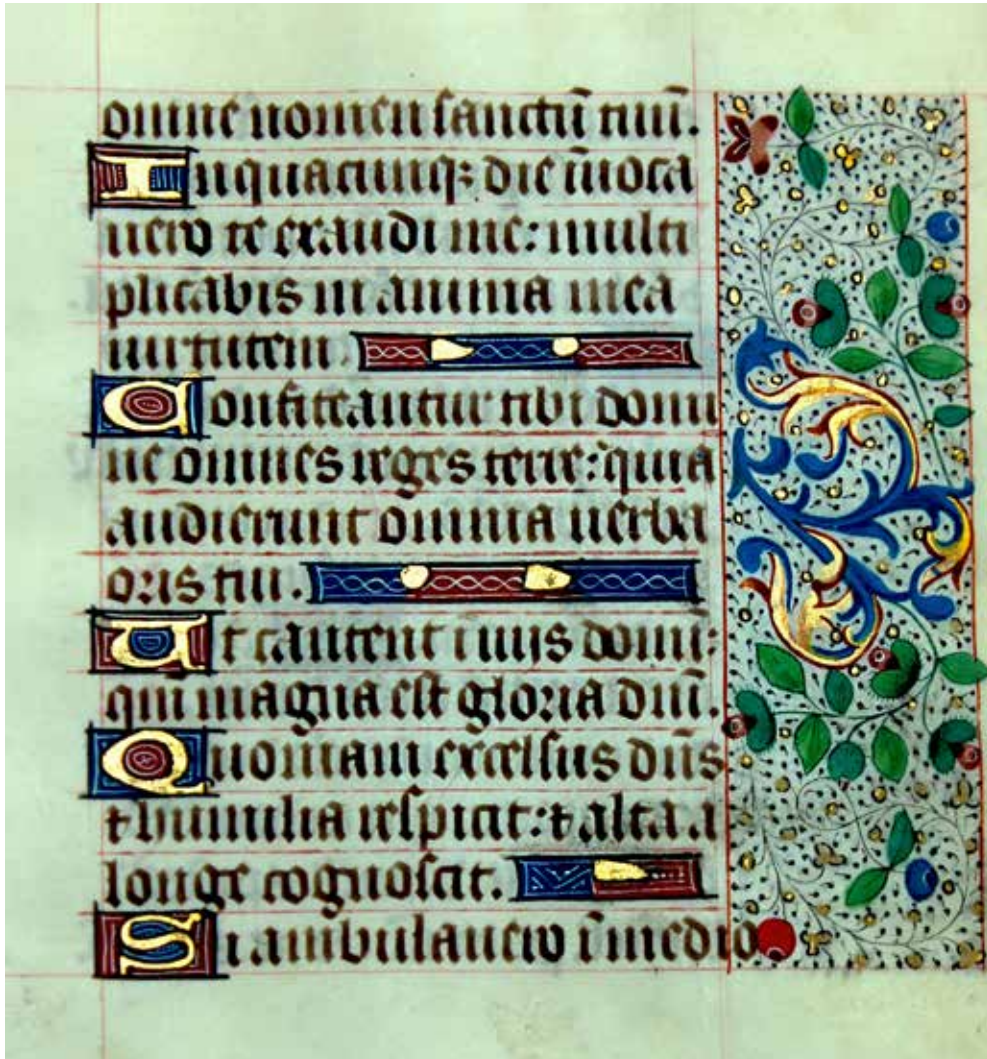 omne nomen sanctū tuū.
In quacumq; die īuoca
uero te exaudi me: multi
plicabis in anima mea
uirtutem.
Confiteantur tibi domi
ne omnes reges terre: quia
audierunt omnia uerba
oris tui.
Et cantent ī uiis domi:
qm̄ magna est gloria dn̄i.
Quoniam excelsus dn̄s
⁊ humilia respicit: ⁊ alta a
longe cognoscit.
Si ambulauero ī medio